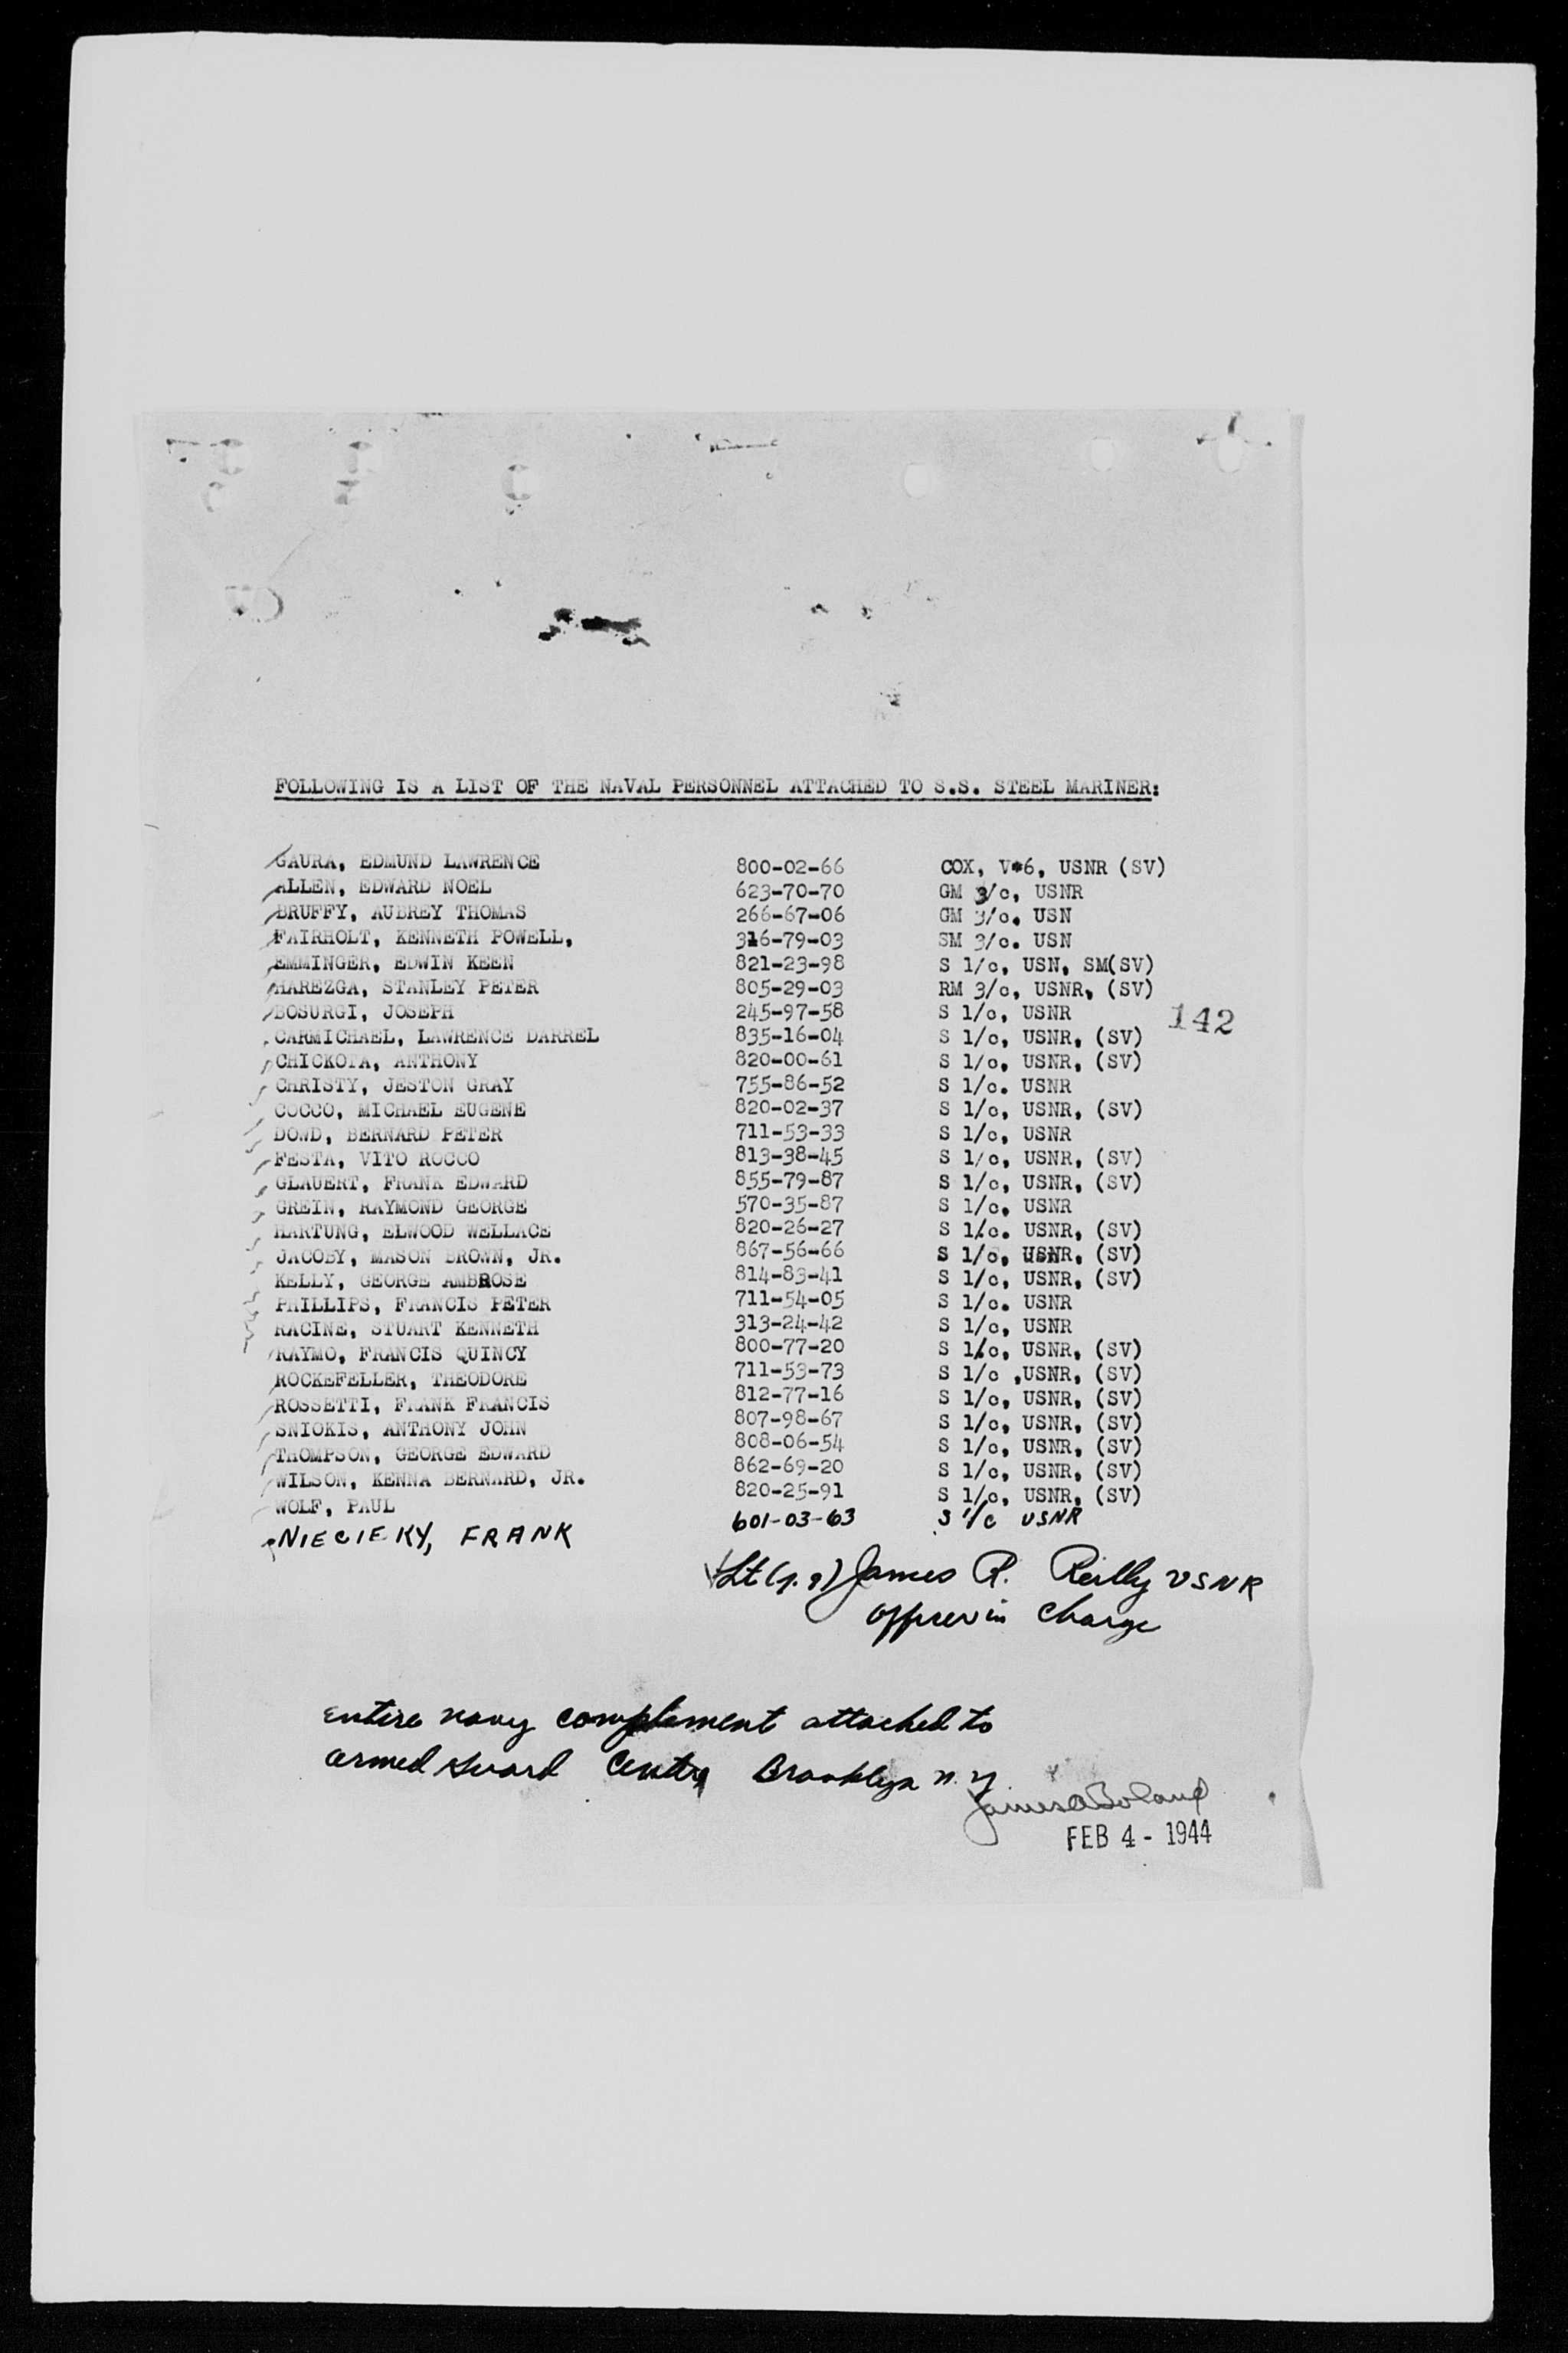 FOLLOWING IS A LIST OF THE NAVAL PERSONNEL ATTACHED TO S.S. STEEL MARINER:
GAURA, EDMUND LAWRENCE 800-02-66 COX, V*6, USNR (SV)
ALLEN, EDWARD NOEL 623-70-70 GM 3/c, USNR
BRUFFY, AUBREY THOMAS 266-67-06 GM 3/c. USN
FAIRHOLT, KENNETH POWELL, 316-79-03 SM 3/c. USN
EMMINGER, EDWIN KEEN 821-23-98 S 1/c, USN, SM(SV)
HAREZGA, STANLEY PETER 805-29-03 RM 3/c, USNR, (SV)
BOSURGI, JOSEPH 245-97-58 S 1/c, USNR
142
CARMICHAEL, LAWRENCE DARREL 835-16-04 S 1/c, USNR, (SV)
CHICKOTA, ANTHONY 820-00-61 S 1/c, USNR, (SV)
CHRISTY, JESTON GRAY 755-86-52 S 1/c. USNR
COCCO, MICHAEL EUGENE 820-02-37 S 1/c, USNR, (SV)
DOWD, BERNARD PETER 711-53-33 S 1/c, USNR
FESTA, VITO ROCCO 813-38-45 S 1/c, USNR, (SV)
GLAUERT, FRANK EDWARD 855-79-87 S 1/c, USNR, (SV)
GREIN, RAYMOND GEORGE 570-35-87 S 1/c, USNR
HARTUNG, ELWOOD WELLACE 820-26-27 S 1/c. USNR, (SV)
JACOBY, MASON BROWN, JR. 867-56-66 S 1/c, USNR, (SV)
KELLY, GEORGE AMBROSE 814-83-41 S 1/c, USNR, (SV)
PHILLIPS, FRANCIS PETER 711-54-05 S 1/c. USNR
RACINE, STUART KENNETH 313-24-42 S 1/c, USNR
RAYMO, FRANCIS QUINCY 800-77-20 S 1/c, USNR, (SV)
ROCKEFELLER, THEODORE 711-53-73 S 1/c ,USNR, (SV)
ROSSETTI, FRANK FRANCIS 812-77-16 S 1/c, USNR, (SV)
SNIOKIS, ANTHONY JOHN 807-98-67 S 1/c, USNR, (SV)
THOMPSON, GEORGE EDWARD 808-06-54 S 1/c, USNR, (SV)
WILSON, KENNA BERNARD, JR. 862-69-20 S 1/c, USNR, (SV)
WOLF, PAUL 820-25-91 S 1/c, USNR, (SV)
NIECIEKY, FRANK 601-03-63 S 1/c USNR
Lt (j.g) James R. Reilly USNR
officer in Charge
Entire navy complement attached to
armed guard Center Brooklyn N.Y.
James A Boland
FEB 4 - 1944